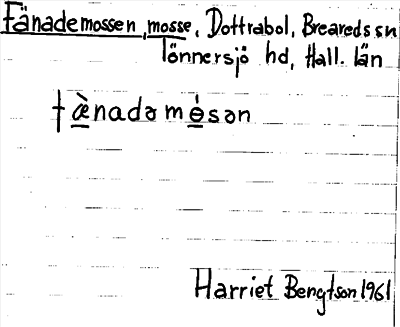 Fänademossen, mosse, Dottrabol, Breareds sn
Tönnersjö hd, Hall. län
fæ̀nadəmósən
Harriet Bengtson 1961